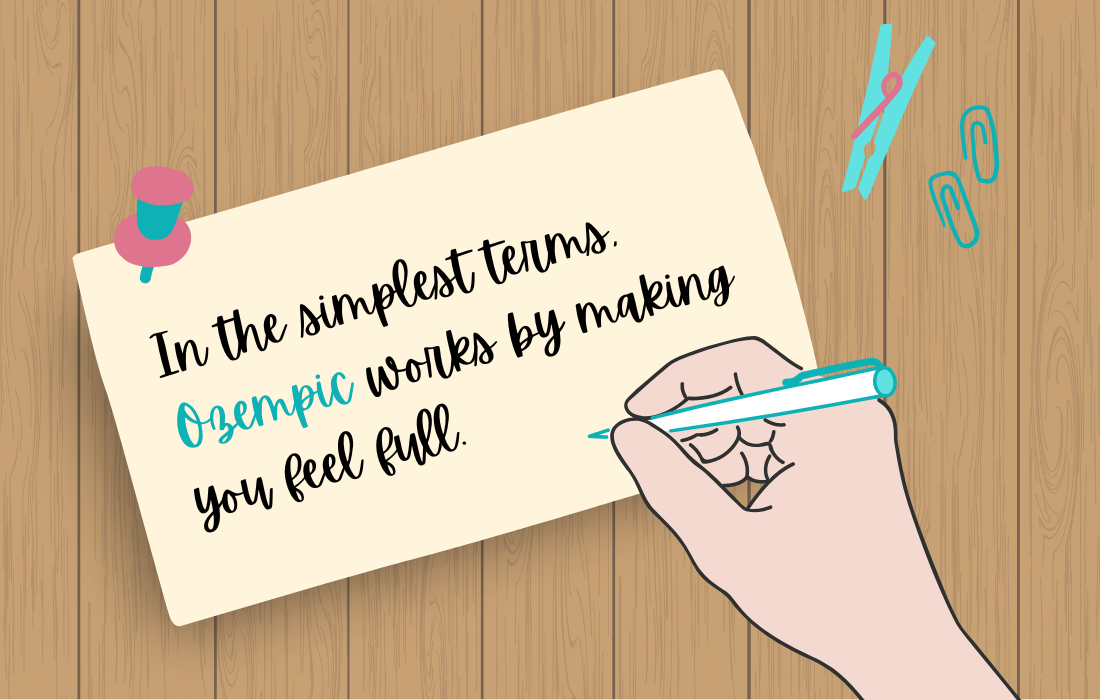 In the simplest terms,
Ozempic works by making
you feel full.